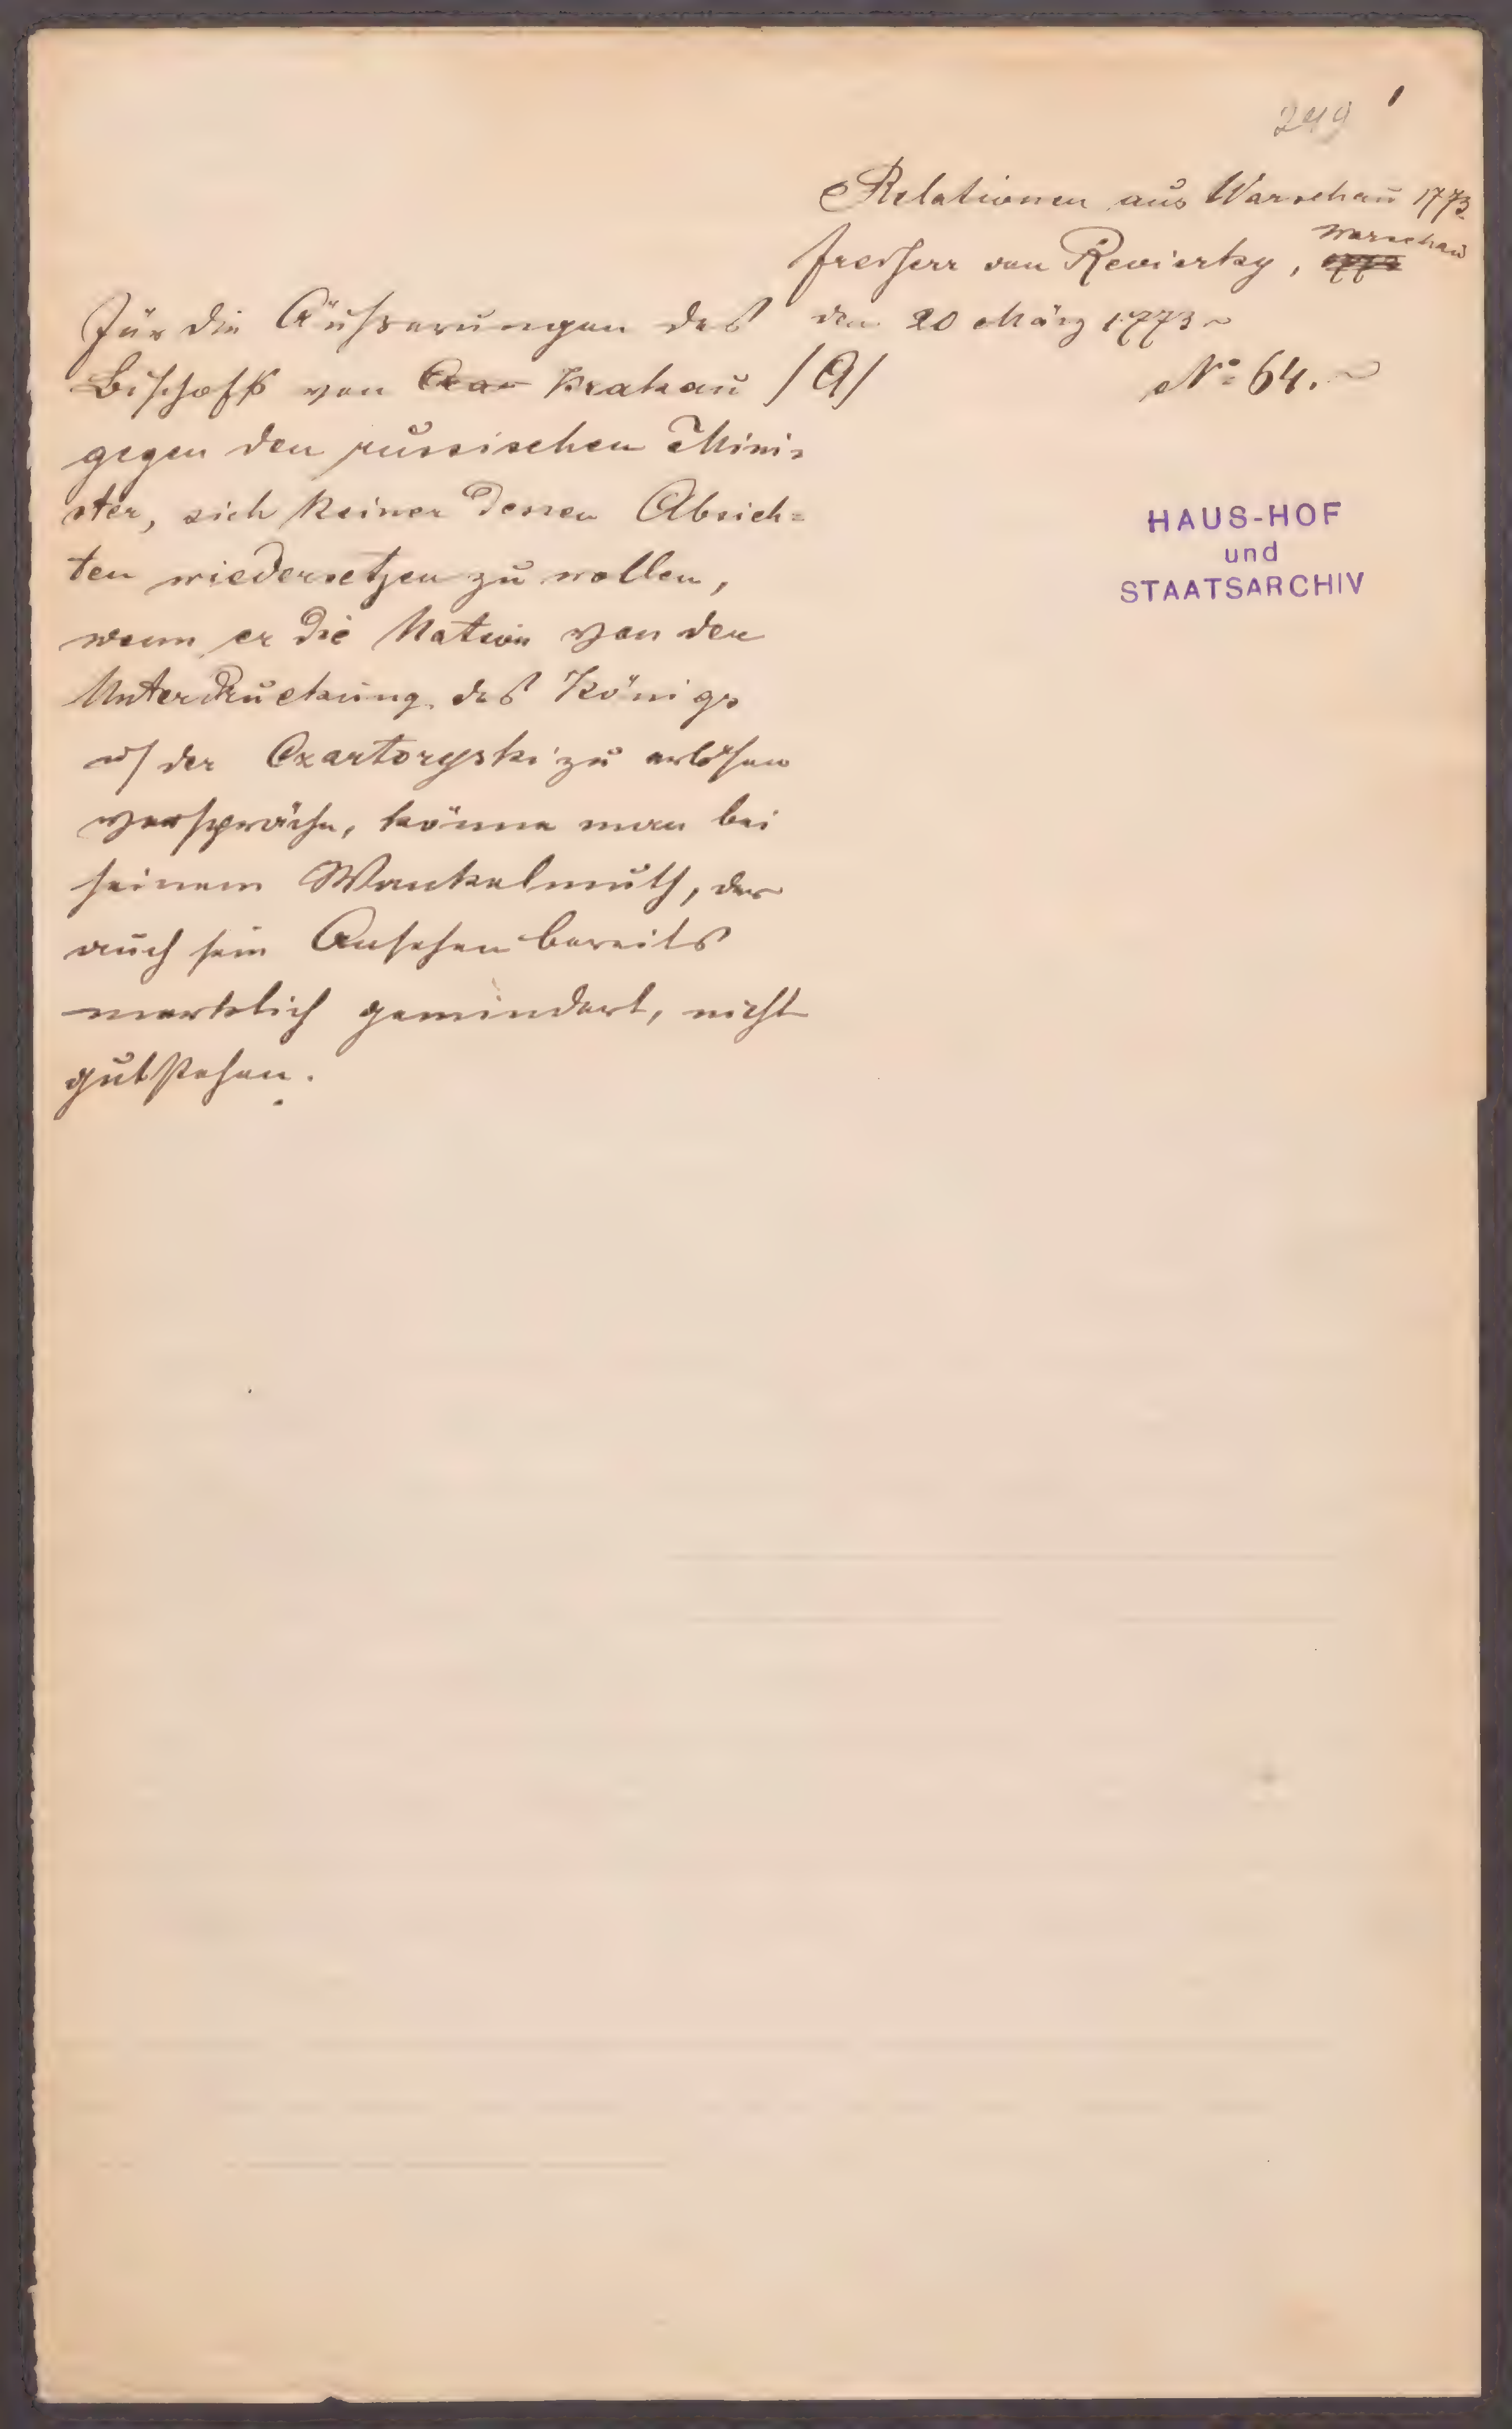 249 1
Relationen aus Warschau 1773.
Freiherr von Reviczky, Warschau
den 20 März 1773
No. 64.
HAUS-HOF
und
STAATSARCHIV
Für die Äußerungen des
Bischofs von Krakau /A/
gegen den russischen Mini-
ster, sich keiner dessen Absich=
ten wiedersetzen zu wollen,
wenn er die Nation von der
Unterdruckung des Königs
u/ der Czartoryski zu erlösen
verspräche, könne man bei
seinem Wankelmuth, der
auch sein Ansehen bereits
merklich gemindert, nicht
gutstehen.